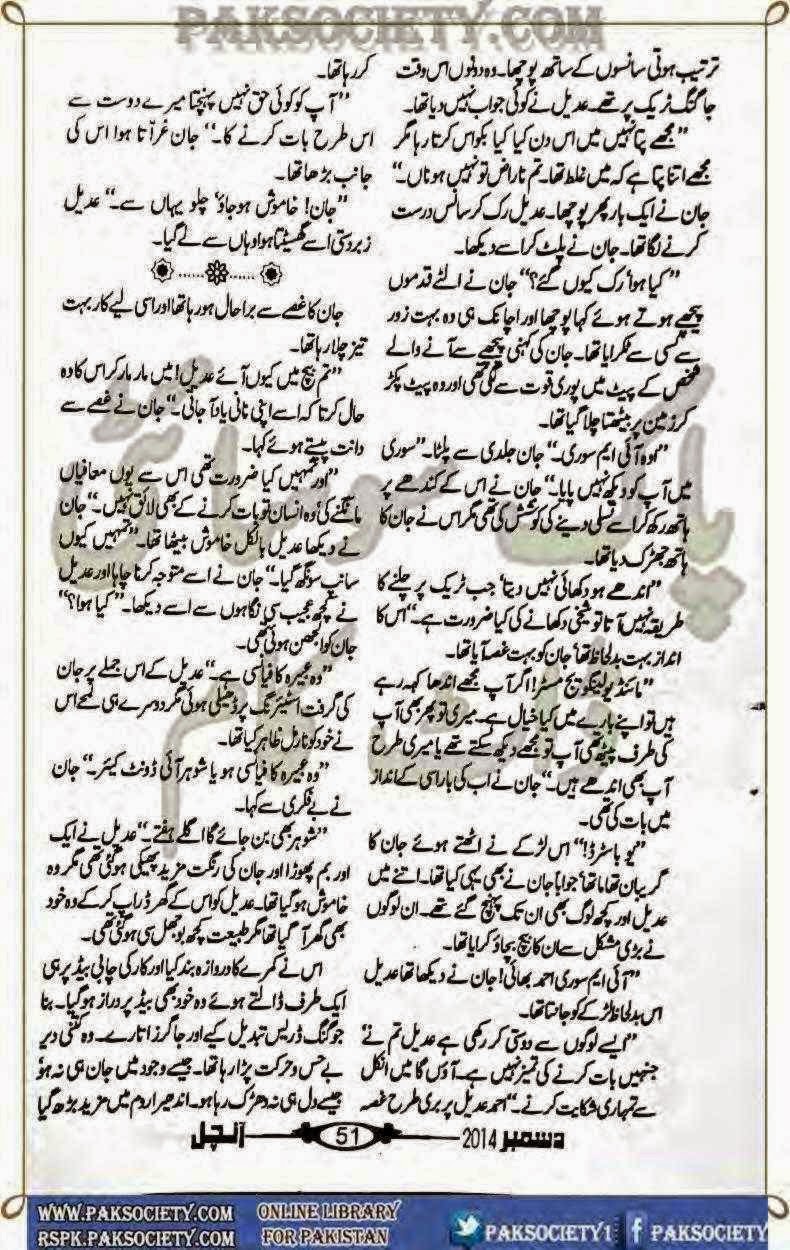 PAKSOCIETY.COM
ترتیب ہوتی سانسوں کے ساتھ پوچھا۔ وہ دونوں اس وقت
جاگنگ ٹریک پر تھے۔ عدیل نے کوئی جواب نہیں دیا تھا۔
”مجھے پتا نہیں میں اس دن کیا کیا بکواس کرتا رہا مگر
مجھے اتنا پتا ہے کہ میں غلط تھا۔ تم ناراض تو نہیں ہوناں۔“
جان نے ایک بار پھر پوچھا۔ عدیل رک کر سانس درست
کرنے لگا تھا۔ جان نے پلٹ کر اسے دیکھا۔
”کیا ہوا‘ رک کیوں گئے؟“ جان نے الٹے قدموں
پیچھے ہوتے ہوئے کہا پوچھا اور اچانک ہی وہ بہت زور
سے کسی سے ٹکرایا تھا۔ جان کی کہنی پیچھے سے آنے والے
شخص کے پیٹ میں پوری قوت سے لگی تھی اور وہ پیٹ پکڑ
کر زمین پر بیٹھتا چلا گیا تھا۔
”اوہ آئی ایم سوری۔“ جان جلدی سے پلٹا۔ ”سوری
میں آپ کو دیکھ نہیں پایا۔“ جان نے اس کے کندھے پر
ہاتھ رکھ کر اسے تسلی دینے کی کوشش کی تھی مگر اس نے جان کا
ہاتھ جھڑک دیا تھا۔
”اندھے ہو دکھائی نہیں دیتا‘ جب ٹریک پر چلنے کا
طریقہ نہیں آتا تو شیخی دکھانے کی کیا ضرورت ہے۔“ اس کا
انداز بہت بدلحاظ تھا‘ جان کو بہت غصہ آیا تھا۔
”مائنڈ یو لینگویج مسٹر! اگر آپ مجھے اندھا کہہ رہے
ہیں تو اپنے بارے میں کیا خیال ہے۔ میری تو پھر بھی آپ
کی طرف پیٹھ تھی آپ تو مجھے دیکھ سکتے تھے یا میری طرح
آپ بھی اندھے ہیں۔“ جان نے اب کی بار اسی کے انداز
میں بات کی تھی۔
”یو باسٹرڈ!“ اس لڑکے نے اٹھتے ہوئے جان کا
گریبان تھاما تھا‘ جواباً جان نے بھی یہی کیا تھا۔ اتنے میں
عدیل اور کچھ لوگ بھی ان تک پہنچ گئے تھے۔ ان لوگوں
نے بڑی مشکل سے ان کا بیچ بچاؤ کرایا تھا۔
”آئی ایم سوری احمر بھائی! جان نے دیکھا تھا عدیل
اس بدلحاظ لڑکے کو جانتا تھا۔
”ایسے لوگوں سے دوستی کر رکھی ہے عدیل تم نے‘
جنہیں بات کرنے کی تمیز نہیں ہے۔ آؤں گا میں انکل
سے تمہاری شکایت کرنے۔“ احمر عدیل پر بری طرح غصہ
کررہا تھا۔
”آپ کو کوئی حق نہیں پہنچتا میرے دوست سے
اس طرح بات کرنے کا۔“ جان غراتا ہوا اس کی
جانب بڑھا تھا۔
”جان! خاموش ہوجاؤ‘ چلو یہاں سے۔“ عدیل
زبردستی اسے گھسیٹتا ہوا وہاں سے لے گیا۔
جان کا غصے سے برا حال ہورہا تھا اور اسی لیے کار بہت
تیز چلا رہا تھا۔
”تم بیچ میں کیوں آئے عدیل! میں مار مار کر اس کا وہ
حال کرتا کہ اسے اپنی نانی یاد آجاتی۔“ جان نے غصے سے
دانت پیستے ہوئے کہا۔
”اور تمہیں کیا ضرورت تھی اس سے یوں معافیاں
مانگنے کی‘ وہ انسان تو بات کرنے کے بھی لائق نہیں۔“ جان
نے دیکھا عدیل بالکل خاموش بیٹھا تھا۔ ”تمہیں کیوں
سانپ سونگھ گیا۔“ جان نے اسے متوجہ کرنا چاہا اور عدیل
نے کچھ عجیب سی نگاہوں سے اسے دیکھا۔ ”کیا ہوا؟“
جان کو الجھن ہوئی تھی۔
”وہ عجیرہ کا فیانسی ہے۔“ عدیل کے اس جملے پر جان
کی گرفت اسٹیئرنگ پر ڈھیلی ہوئی مگر دوسرے ہی لمحے اس
نے خود کو نارمل ظاہر کیا تھا۔
”وہ عجیرہ کا فیانسی ہو یا شوہر آئی ڈونٹ کیئر۔“ جان
نے بے فکری سے کہا۔
”شوہر بھی بن جائے گا اگلے ہفتے۔“ عدیل نے ایک
اور بم پھوڑا اور جان کی رنگت مزید پھیکی ہوگئی تھی مگر وہ
خاموش ہوگیا تھا۔ عدیل کو اس کے گھر ڈراپ کرکے وہ خود
بھی گھر آگیا تھا مگر طبیعت کچھ بوجھل سی ہوگئی تھی۔
اس نے کمرے کا دروازہ بند کیا اور کار کی چابی بیڈ پر ہی
ایک طرف ڈالتے ہوئے وہ خود بھی بیڈ پر دراز ہوگیا۔ بنا
جوگنگ ڈریس تبدیل کیے اور جاگرز اتارے۔ وہ کتنی دیر
بے حس و حرکت پڑا رہا تھا۔ جیسے وجود میں جان ہی نہ ہو‘
جیسے دل ہی نہ دھڑک رہا ہو۔ اندھیرا روم میں مزید بڑھ گیا
دسمبر 2014 51 آنچل
پاک سوسائٹی ڈاٹ کام
WWW.PAKSOCIETY.COM
RSPK.PAKSOCIETY.COM
ONLINE LIBRARY
FOR PAKISTAN
PAKSOCIETY1
PAKSOCIETY